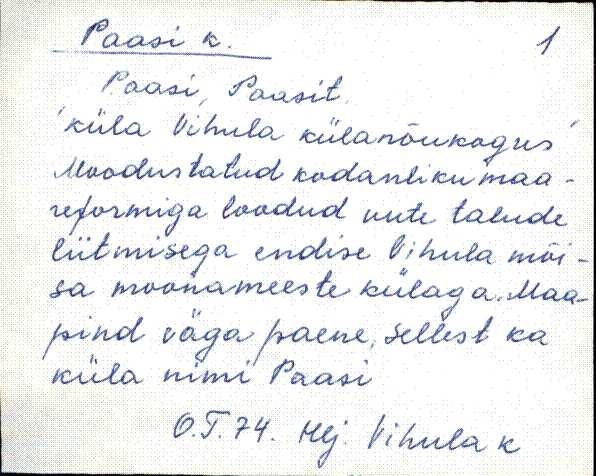 Paasi k.
1
Paasi, Paasit.
'küla Vihula külanõukogus'
Moodustatud kodanliku maa-
reformiga loodud uute talude
liitmisega endise Vihula mõi-
sa moonameeste külaga. Maa-
pind väga paene, sellest ka
küla nimi Paasi
O.T. 74. Hlj. Vihula k